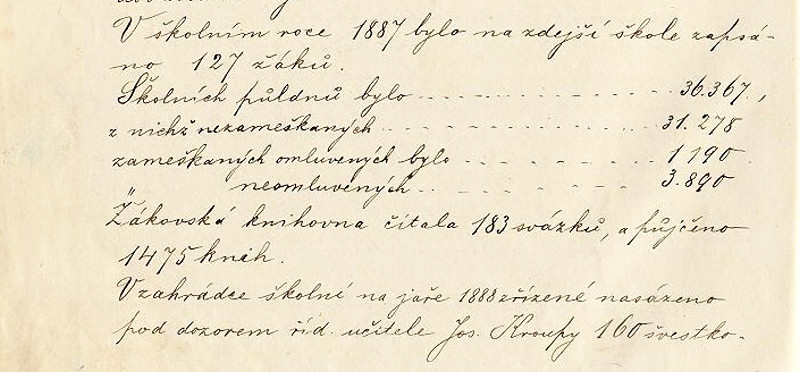 V školním roce 1887 bylo na zdejší škole zapsá-
no 127 žáků.
Školních půldnů bylo 36.367,
z nichž nezameškaných 31.278
zameškaných omluvených bylo 1190
" neomluvených 3.890
Žákovská knihovna čítala 183 svázků, a půjčeno
1475 knih.
V zahrádce školní na jaře 1888 zřízené nasázeno
pod dozorem říd. učitele Jos. Kroupy 160 švestko-